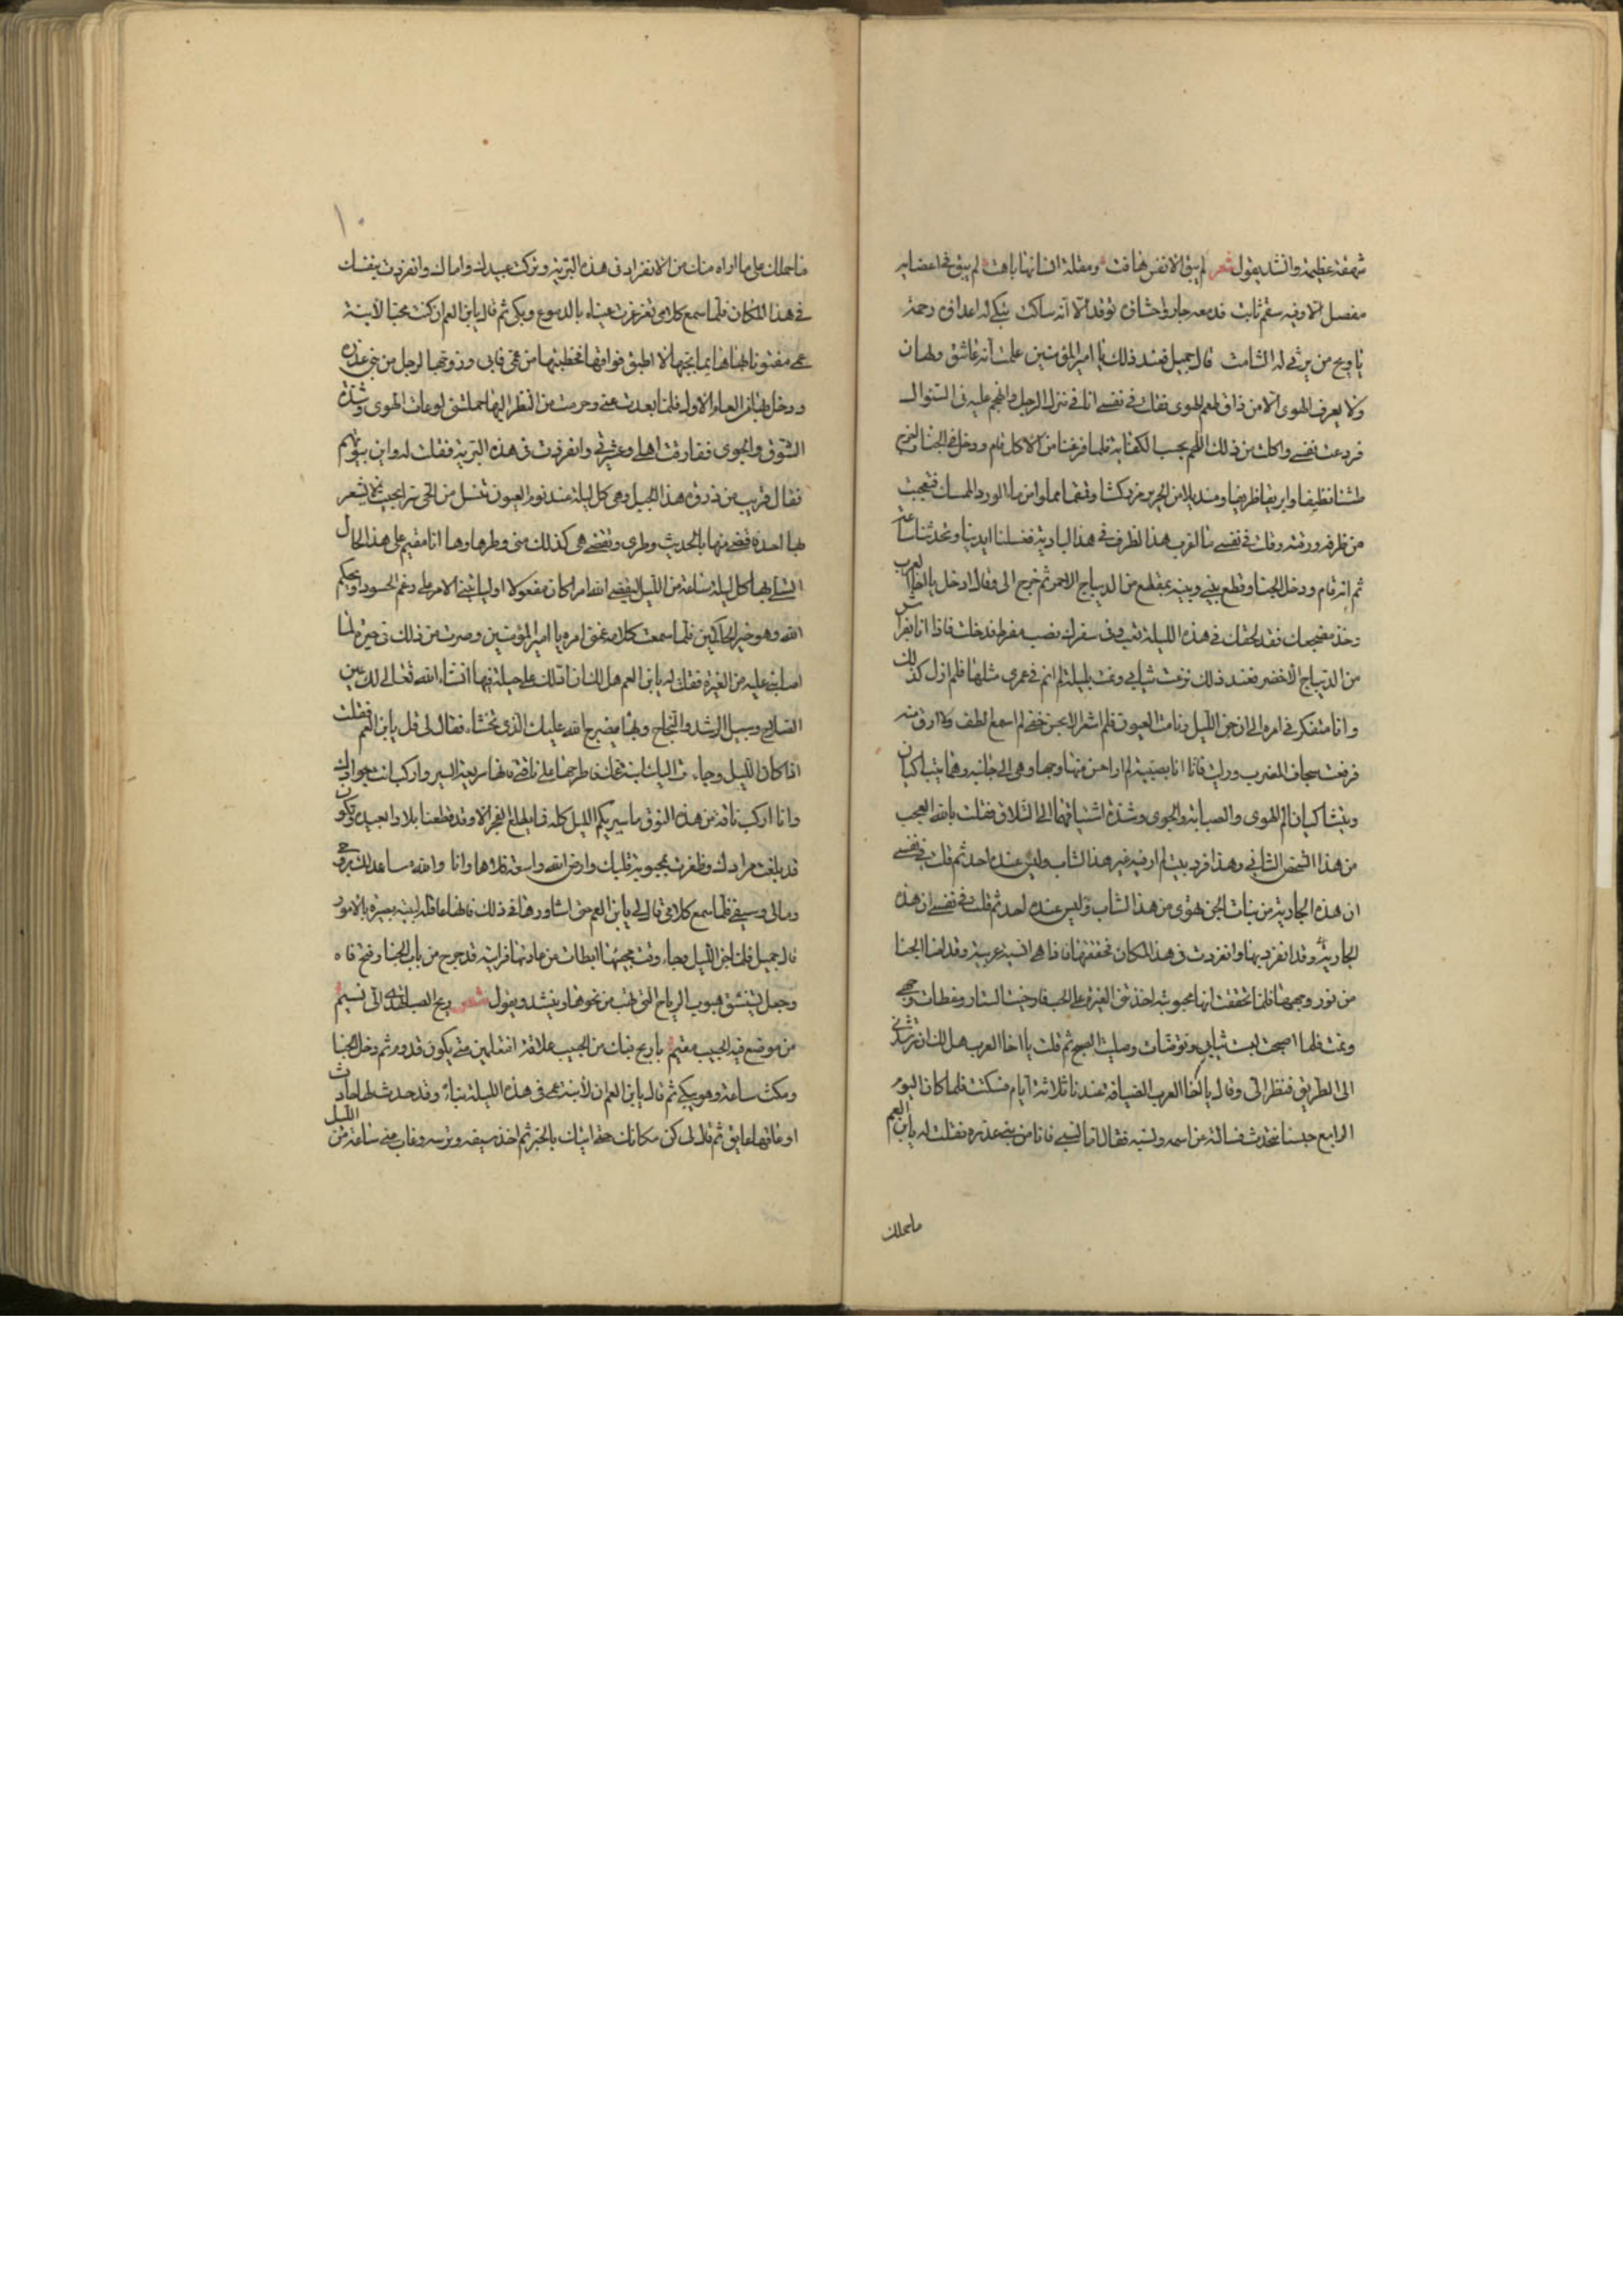 شهقة عظيمة وانشد يقول شعر لم يبق الا نفس هافت ومقلة انسانها باهت لم يبق في اعضايه
مفصل الا وفيه سقم ثابت فدمعه جار واحشاؤه توقد الا انه ساكت يبكي له اعداؤه رحمة
يا ويح من يرثي له الشامت قال جميل فعند ذلك يا امير المؤمنين علمت انه عاشق ولهان
ولا يعرف الهوى الا من ذاق طعم الهوى فقلت في نفسي انا في منزل الرجل واتهجم عليه في السؤال
فردعت نفسي واكلت من ذلك اللحم بحسب الكفاية فلما فرغنا من الاكل قام ودخل في الخبا اخرج
طشتا نظيفا وابريقا ظريفا ومنديلا من الحرير مزركشا وقمقما مملوا من ماء الورد الممسك فتعجبت
من ظرفه ورقته وقلت في نفسي ما اغرب هذا الظرف في هذا البادية فغسلنا ايدينا وتحدثنا ساعة
ثم انه قام ودخل الخبا وقطع بيني وبينه بمقطع من الديباج الاحمر ثم خرج الي وقال ادخل يا اخا العرب
وخذ مضجعك فقد لحقك في هذه الليلة تعب وفي سفرك نصب مفرط فدخلت فاذا انا بفراش
من الديباج الاخضر فعند ذلك نزعت ثيابي ونمت بليلة لم انم في عمري مثلها فلم ازل كذلك
وانا متفكر في امره الى ان جن الليل ونامت العيون فلم اشعر الا بحس خفي لم اسمع الطف ولا ارق منه
فرفعت سجاف المضرب ورايت فاذا انا بصبية لم ار احسن منها وجها وهي الى جانبه وهما يتباكيان
ويتشاكيان الم الهوى والصبابة والجوى وشدة اشتياقهما الى التلاق فقلت بالله العجب
من هذا الشخص الثاني وهذا فرد بيت لم ار فيه غير هذا الشاب وليس عنده احد ثم قلت في نفسي
ان هذه الجارية من بنات الجن تهوى من هذا الشاب وليس عنده احد ثم قلت في نفسي ان هذه
الجارية وقد انفرد بها وانفردت في هذا المكان فحققتها فاذا هي انسية عربية وقد اضا الخبا
من نور وجهها فلما تحققت انها محبوبته اخذتني الغيرة على الحب فارخيت الستار وغطيت وجهي
ونمت فلما اصبحت لبست ثيابي وتوضات وصليت الصبح ثم قلت يا اخا العرب هل لك ان ترشدني
الى الطريق فنظر الي وقال يا اخا العرب الضيافة عندنا ثلاثة ايام فسكت فلما كان اليوم
الرابع جلسنا نتحدث فسالته عن اسمه ونسبه فقال اما نسبي فانا من بني عذره فقلت له يا بن العم
ما حملك
ما حملك على ما اراه منك من الانفراد في هذه البرية وتركت عبيدك واماك وانفردت بنفسك
في هذا المكان فلما سمع كلامي تغرغرت عيناه بالدموع وبكى ثم قال يا بن العم ان كنت محبا لابنة
عمي مفتونا بها هايما بحبها لا اطيق فراقها فخطبتها من عمي فابى وزوجها لرجل من بني عذره
ودخل بها من العام الاول فلما بعدت عني وحرمت من النظر اليها حملتني لوعات الهوى وشدة
الشوق والجوى ففارقت اهلي وعشيرتي وانفردت في هذه البرية فقلت له واين بيوتهم
فقال قريب من ذروة هذا الجبل وهي كل ليلة عند نوم العيون تنسل من الحي سرا بحيث لا يشعر
بها احد فاقضي منها بالحديث وطري وتقضي هي كذلك مني وطرها وها انا مقيم على هذا الحال
اتسلى بها كل ليلة ساعة من الليل ليقضي الله امرا كان مفعولا او ياتيني الامر على رغم الحسود او يحكم
الله وهو خير الحاكمين فلما سمعت كلامه غمني امره يا امير المؤمنين وصرت من ذلك في حيرة لما
اصابني عليه من الغيرة فقلت له يا بن العم هل لك ان ادلك على حيلة فيها ان شاء الله تعالى لك عين
الصلاح وسبيل الرشد والنجاح وبها يفرج الله عليك الذي تخشاه فقال لي قل يا بن العم فقلت
اذا كان الليل وجاءت اليك ابنة عمك فاطرحها على ناقتي فانها سريعة السير واركب انت جوادك
وانا اركب ناقة من هذه النوق واسير بكم الليل كله فما يطلع الفجر الا وقد قطعنا بلادا بعيده وتكون
قد بلغت مرادك وظفرت بمحبوبة قلبك وارض الله واسعة فلاها وانا والله مساعدك بروحي
ومالي وسيفي فلما سمع كلامي قال لي يا بن العم حتى اشاورها في ذلك فانها عاقلة لبيبة بصيرة بالامور
قال جميل فلما جن الليل وجاء وقت مجيئها ابطات عن عادتها فرايته قد خرج من باب الخبا وفتح فاه
وجعل يتنشق هبوب الرياح التي تهب من نحوها وينشد ويقول شعر ريح الصبا تهدي الي نسيم
من موضع فيه الحبيب مقيم يا ريح فيك من الحبيب علامة افتعلمين متى يكون قدوم ثم دخل الخبا
ومكث ساعة وهو يبكي ثم قال يا بن العم ان لابنة عمي في هذه الليلة نباء وقد حدث لها حادث
او عاقها عايق ثم قال لي كن مكانك حتى اتيك بالخبر ثم اخذ سيفه وترسه وغاب عني ساعة من الليل